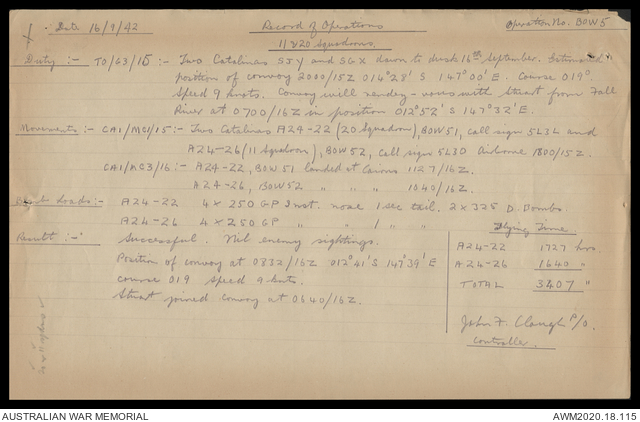 Date 16/9/42 Record of Operations Operation No. BOW 5
11 & 20 Squadrons
Duty :- TO/G3/15 :- Two Catalinas SJY and SGX dawn to dusk 16th September. Estimated
position of convoy 2000/15Z 014°28' S 147°00' E. Course 019°.
Speed 9 knots. Convoy will rendez-vous with Stuart from Fall
River at 0700/16Z in position 012°52' S 147°32' E.
Movements :- CA1/MC1/15 :- Two Catalinas A24-22 (20 Squadron), BOW 51, call sign 5L3L and
A24-26 (11 Squadron), BOW 52, call sign 5L3O Airborne 1800/15Z.
CA1/MC3/16 :- A24-22, BOW 51 landed at Cairns 1127/16Z.
A24-26, BOW 52 " " " 1040/16Z.
Bomb Loads :- A24-22 4 x 250 GP Inst. nose 1 sec tail. 2 x 325 D. Bombs.
A24-26 4 x 250 GP " " 1 " "
Result :- Successful. Nil enemy sightings.
Position of convoy at 0832/16Z 012°41' S 147°39' E
course 019 speed 9 knots.
Stuart joined convoy at 0640/16Z.
Flying Time
A24-22 1727 hrs.
A24-26 1640 "
TOTAL 3407 "
John F. Clough P/O.
Controller.
AUSTRALIAN WAR MEMORIAL AWM2020.18.115